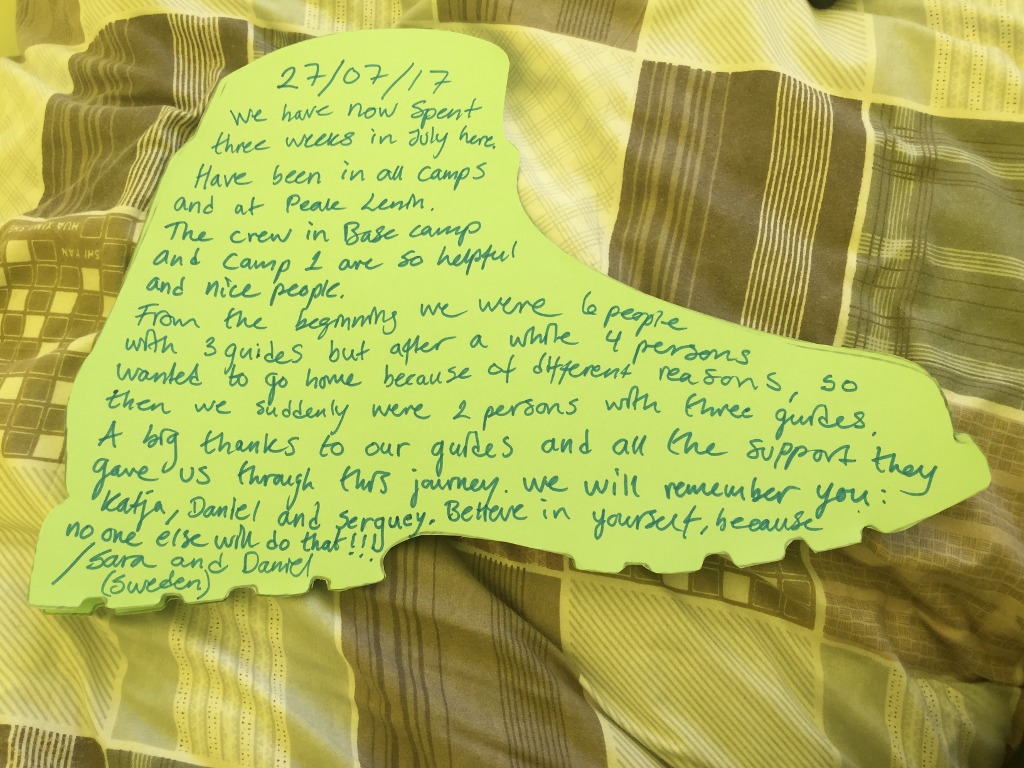 27/07/17
We have now spent
three weeks in July here.
Have been in all camps
and at Peak Lenin.
The crew in Base camp
and camp 1 are so helpful
and nice people.
From the beginning we were 6 people
with 3 guides but after a while 4 persons
wanted to go home because of different reasons, so
then we suddenly were 2 persons with three guides.
A big thanks to our guides and all the support they
gave us through this journey. We will remember you:
Katja, Daniel and Serguey. Believe in yourself, because
no one else will do that!!!
/Sara and Daniel
(Sweden)
SHI YAN